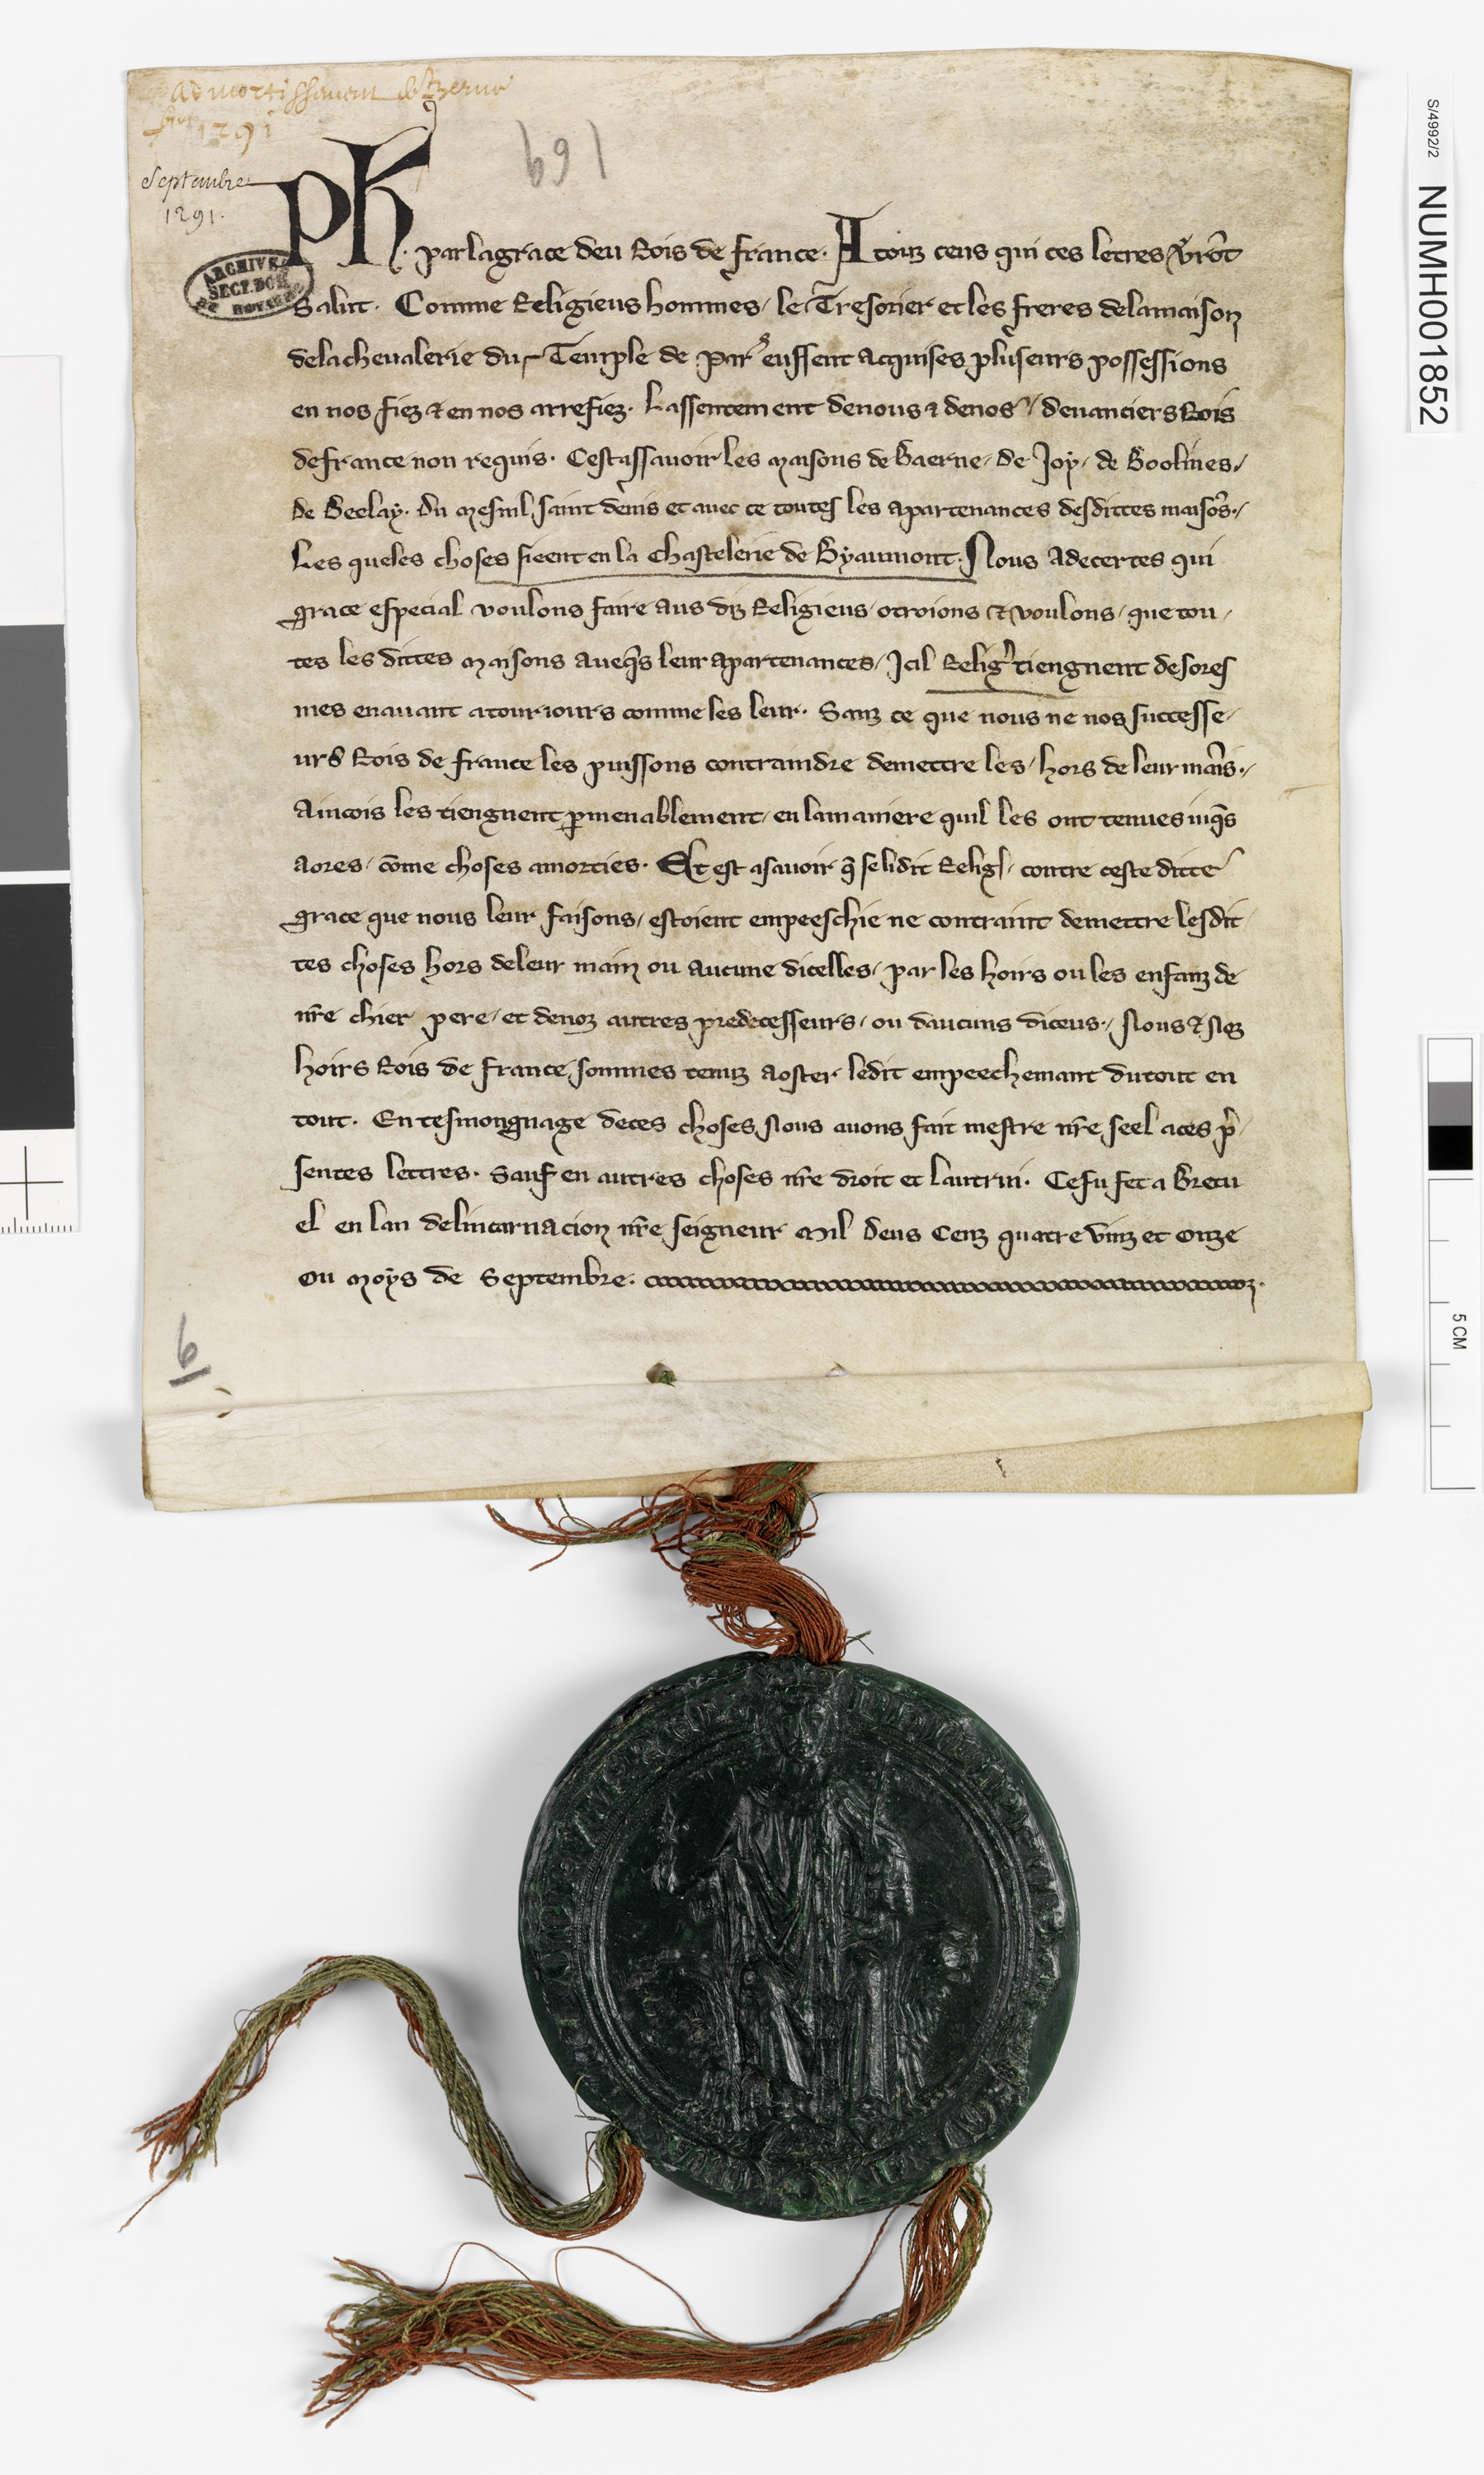 admortissement de Berne
1291
Septembre
1291.
169
ARCHIVES
SECT. DOM.
DU ROYAUME
Ph. par la grace deu Rois de france. A touz ceus qui ces letres v̾rōt
Salut. Comme Religieus hommes, le Tresorier et les freres dela maison
dela cheualerie du Temple de Par᾽ eussent acquises pluseurs possessions
en nos fiez & en nos arrefiez. Lassentement de nous & de nos deuanciers Rois
de france non requis. Cest assauoir les maisons de Baerne, De Joy, de Boolines,
de Beelay. Du mesnil saint denis et auec ce toutes les apartenances desdittes maisōs.
Les queles choses sieent en la Chastelerie de Byaumont. Nous adecertes qui
grace especial voulons faire aus diz Religieus, otroions & voulons, que tou,
tes les dittes maisons aueq̄s leur apartenances, Icil Relig᾽ tiengnent desores
mes enauant a touriours comme les leur. Sanz ce que nous ne nos successe,
urs Rois de france les puissons contraindre de mettre les, hors de leur mains.
Aincois les tiengnent ꝑmenablement, en la maniere quil les ont tenues iuq̄s
a ores, cōme choses amorties. Et est asauoir q̄ se lidit Relig᾽, contre ceste ditte
grace que nous leur faisons, estoient empeeschie ne contraint de mettre les dit
tes choses hors de leur main ou aucune dicelles, par les hoirs ou les enfanz de
nr̄e chier pere, et de noz autres predecesseurs, ou daucuns diceus, Nous & Noz
hoirs Rois de france, sommes tenuz a oster ledit empeechemant du tout en
tout. En tesmongnage de ces choses Nous auons fait mestre nr̄e seel a ces p̄,
sentes lettres. Sauf en autres choses nr̄e droit et lautrui. Ce fu fet a Bretu
el en lan de lincarnacion nr̄e seigneur Mil Deus Cenz quatre vinz et onze
ou moys de Septembre.
6
S/4992/2
NUMH001852
5 CM